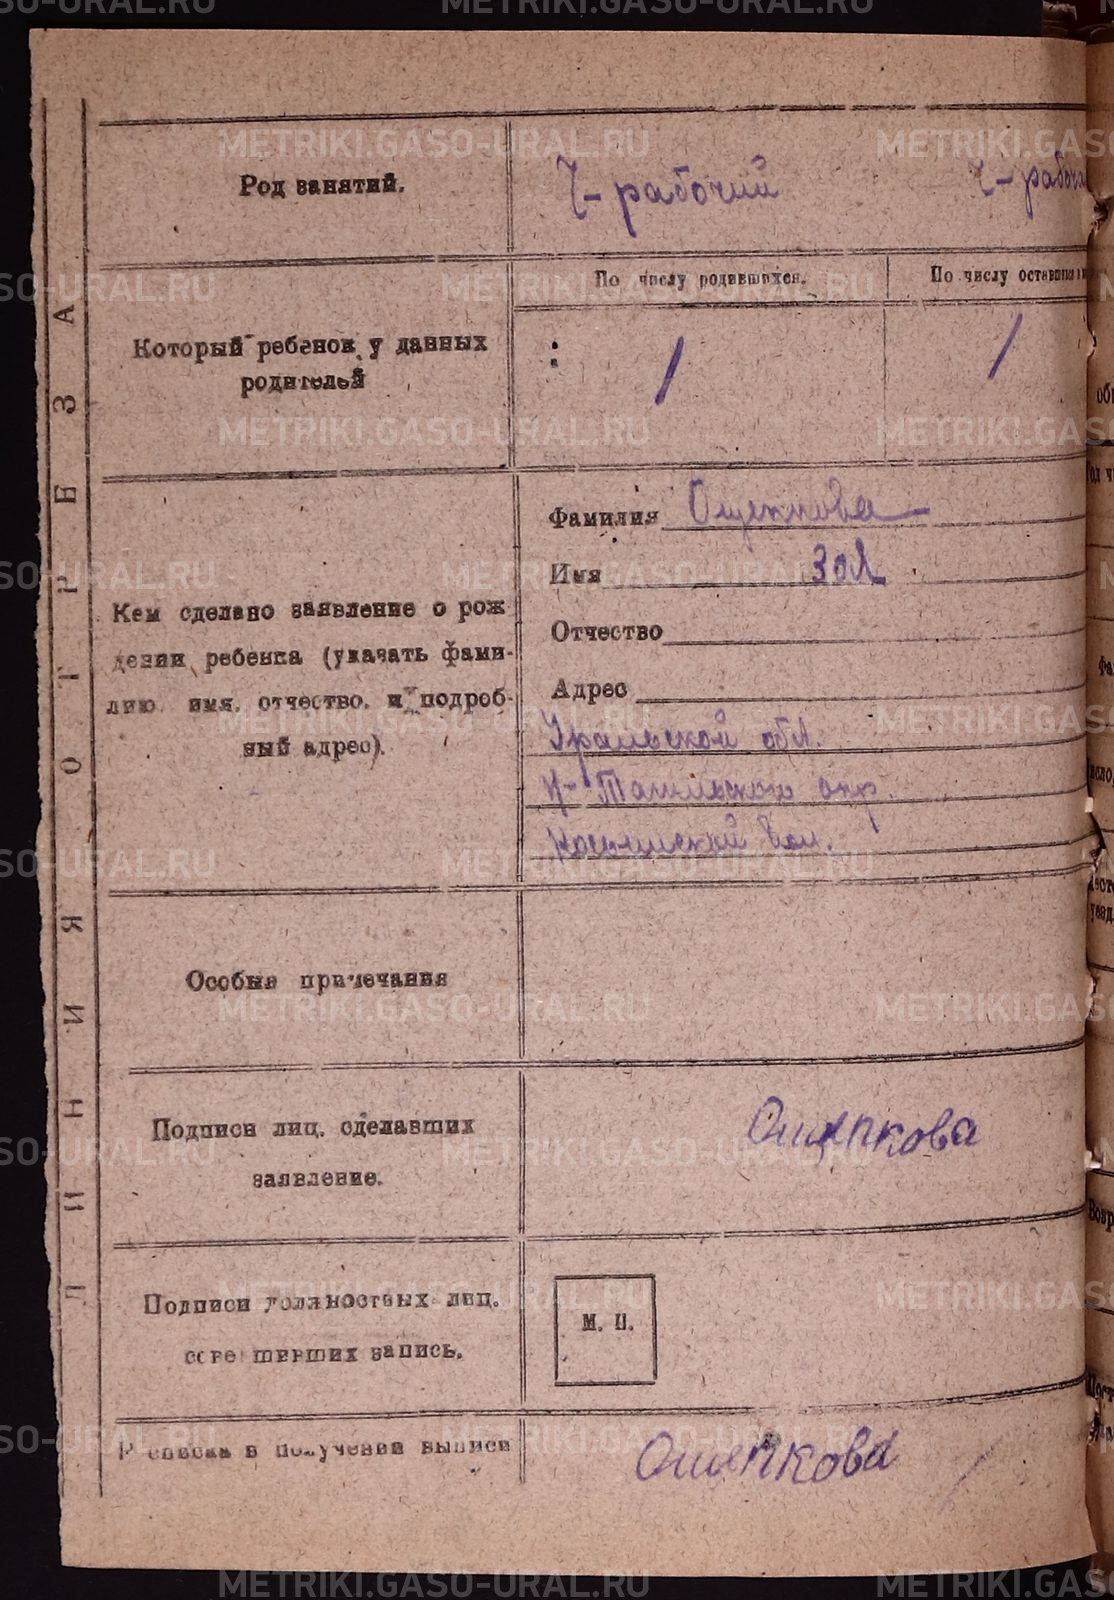 METRIKI.GASO-URAL.RU
ЛИНИЯ ОТРЕЗА
Род занятий.
Ч-рабочий
Ч-рабочи
Который ребенок у данных
родителей
По числу родившихся.
По числу оставшихся
1
1
Кем сделано заявление о рож
дении ребенка (указать фами-
лию, имя, отчество, и подроб-
ный адрес).
Фамилия Ощепкова
Имя Зоя
Отчество
Адрес
Уральской обл.
Н-Тагильского окр.
Особыя примечания
Подписи лиц, сделавших
заявление.
Ощепкова
Подписи должностных лиц,
совершивших запись.
М. П.
Расписка в получении выписи
Ощепкова